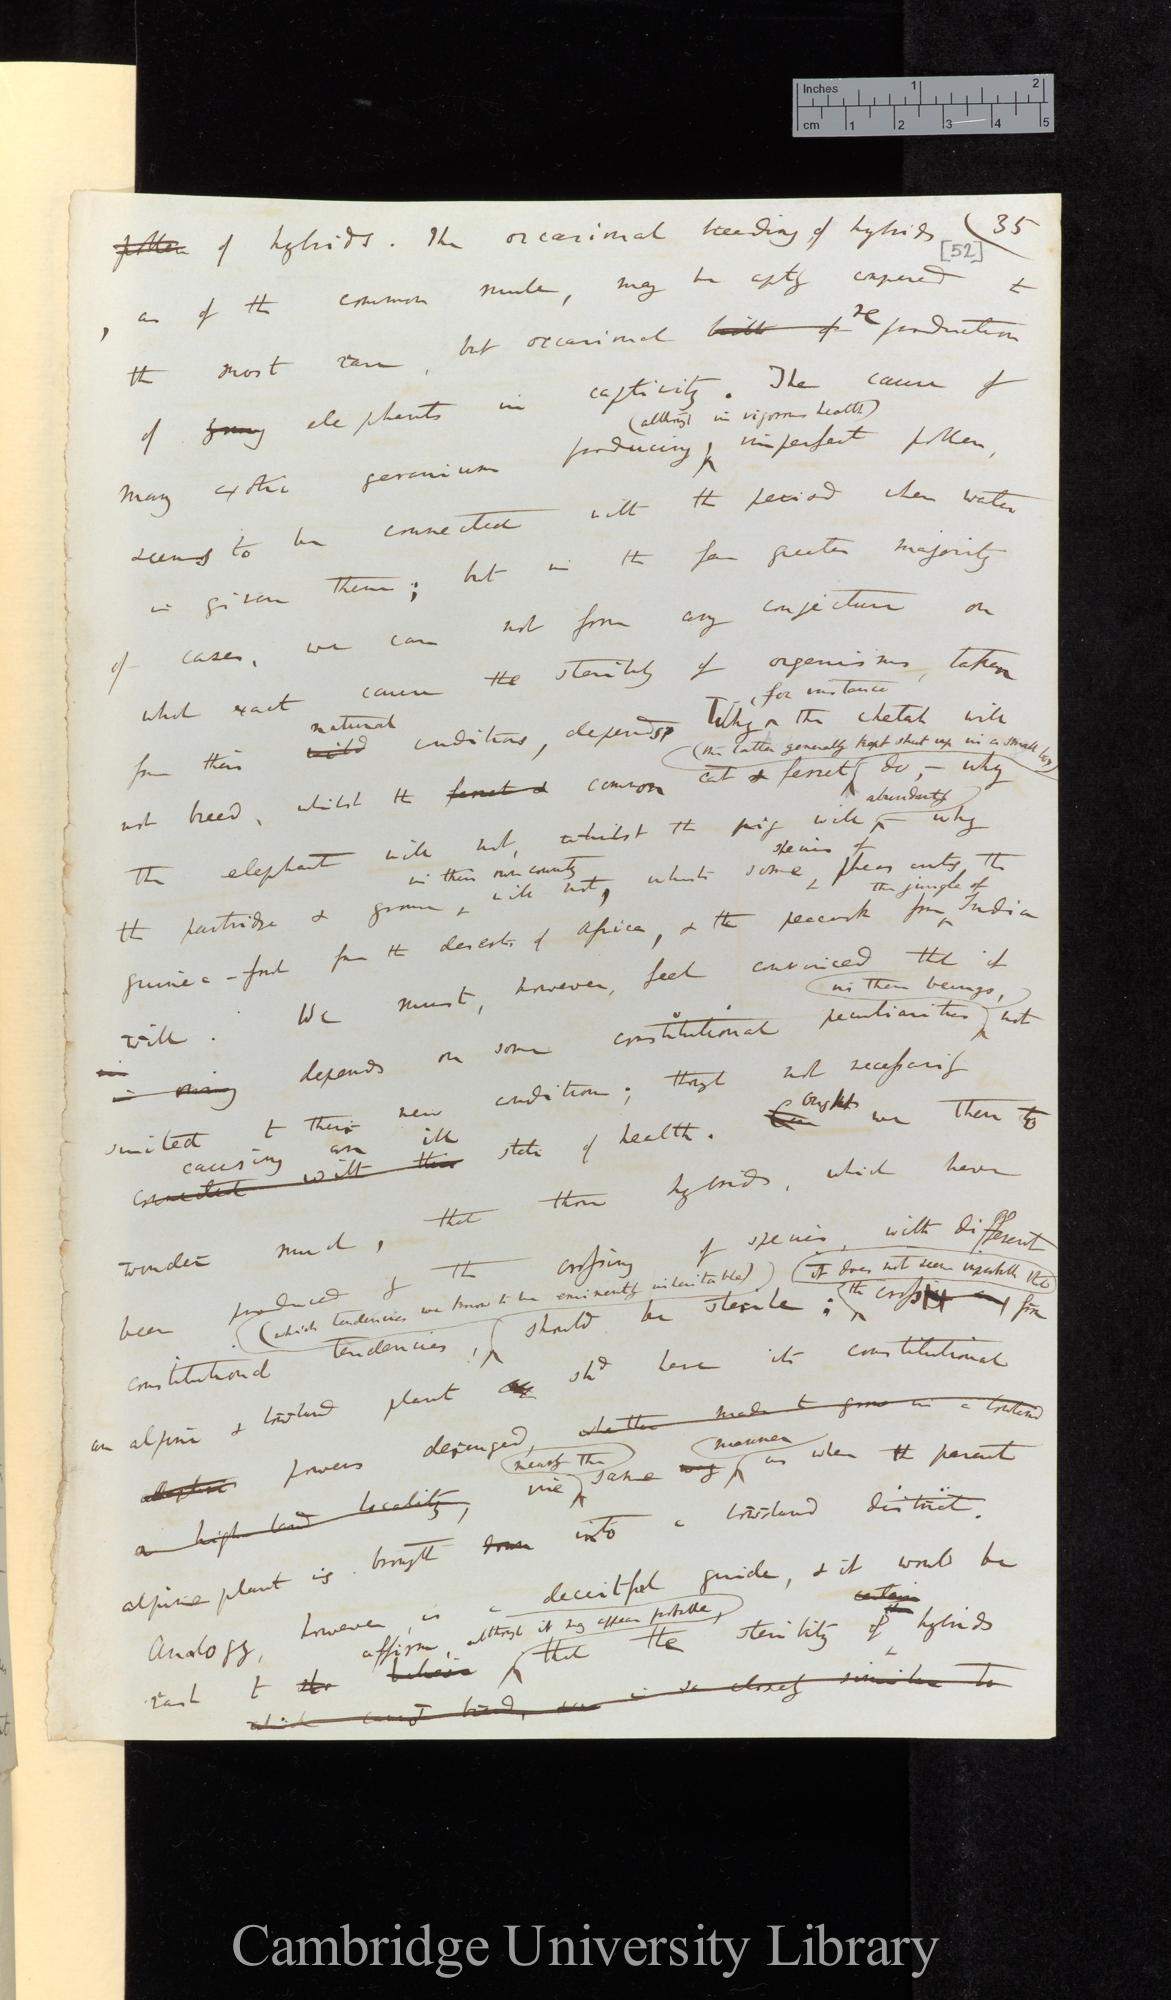 Inches 1 2
cm 1 2 3 4 5
35
[52]
pollen of hybrids. The occasional breeding of hybrids
, as of the common mule, may be aptly compared to
the most rare, but occasional birth of reproduction
of young elephants in captivity. The cause of
(although in vigorous health)
many exotic geranium producing, imperfect pollen,
seems to be connected with the period when water
is given them; but in the far greater majority
of cases, we can not form any conjecture on
what exact cause the sterility of organisms, taken
natural , for instance
from their wild conditions, depends. Why the chetah will
(the latter generally kept shut up in a small box)
not breed, whilst the ferret & common cat & ferret do, – why
abundantly
the elephant will not, whilst the pig will – why
in their own country species of
the partridge & grouse will not, whilst some pheasants, the
the jungle of
guinea-fowl from the deserts of Africa, & the peacock from India
will. We must, however, feel convinced that it
in these beings,
is owing depends on some constitutional peculiarities not
suited to their new condition; though not necessarily
causing an ill ought
connected with their state of health. Can we then to
wonder much, that those hybrids, which have
been produced by the crossing of species, with different
(which tendencies we know to be eminently inheritable) it does not seem improbable that
constitutional tendencies, should be sterile; the cross from
an alpine & lowland plant shd have its constitutional
adaptive powers deranged, whether made to grow in a lowland
nearly the manner
a high land locality, in same way as when the parent
alpine plant is brought down into a lowland district.
Analogy, however, is a deceitful guide, & it would be
affirm, although it may appear probable, certain
rash to the believe that the sterility of the hybrids
which cannot breed, is so closely similar to
Cambridge University Library